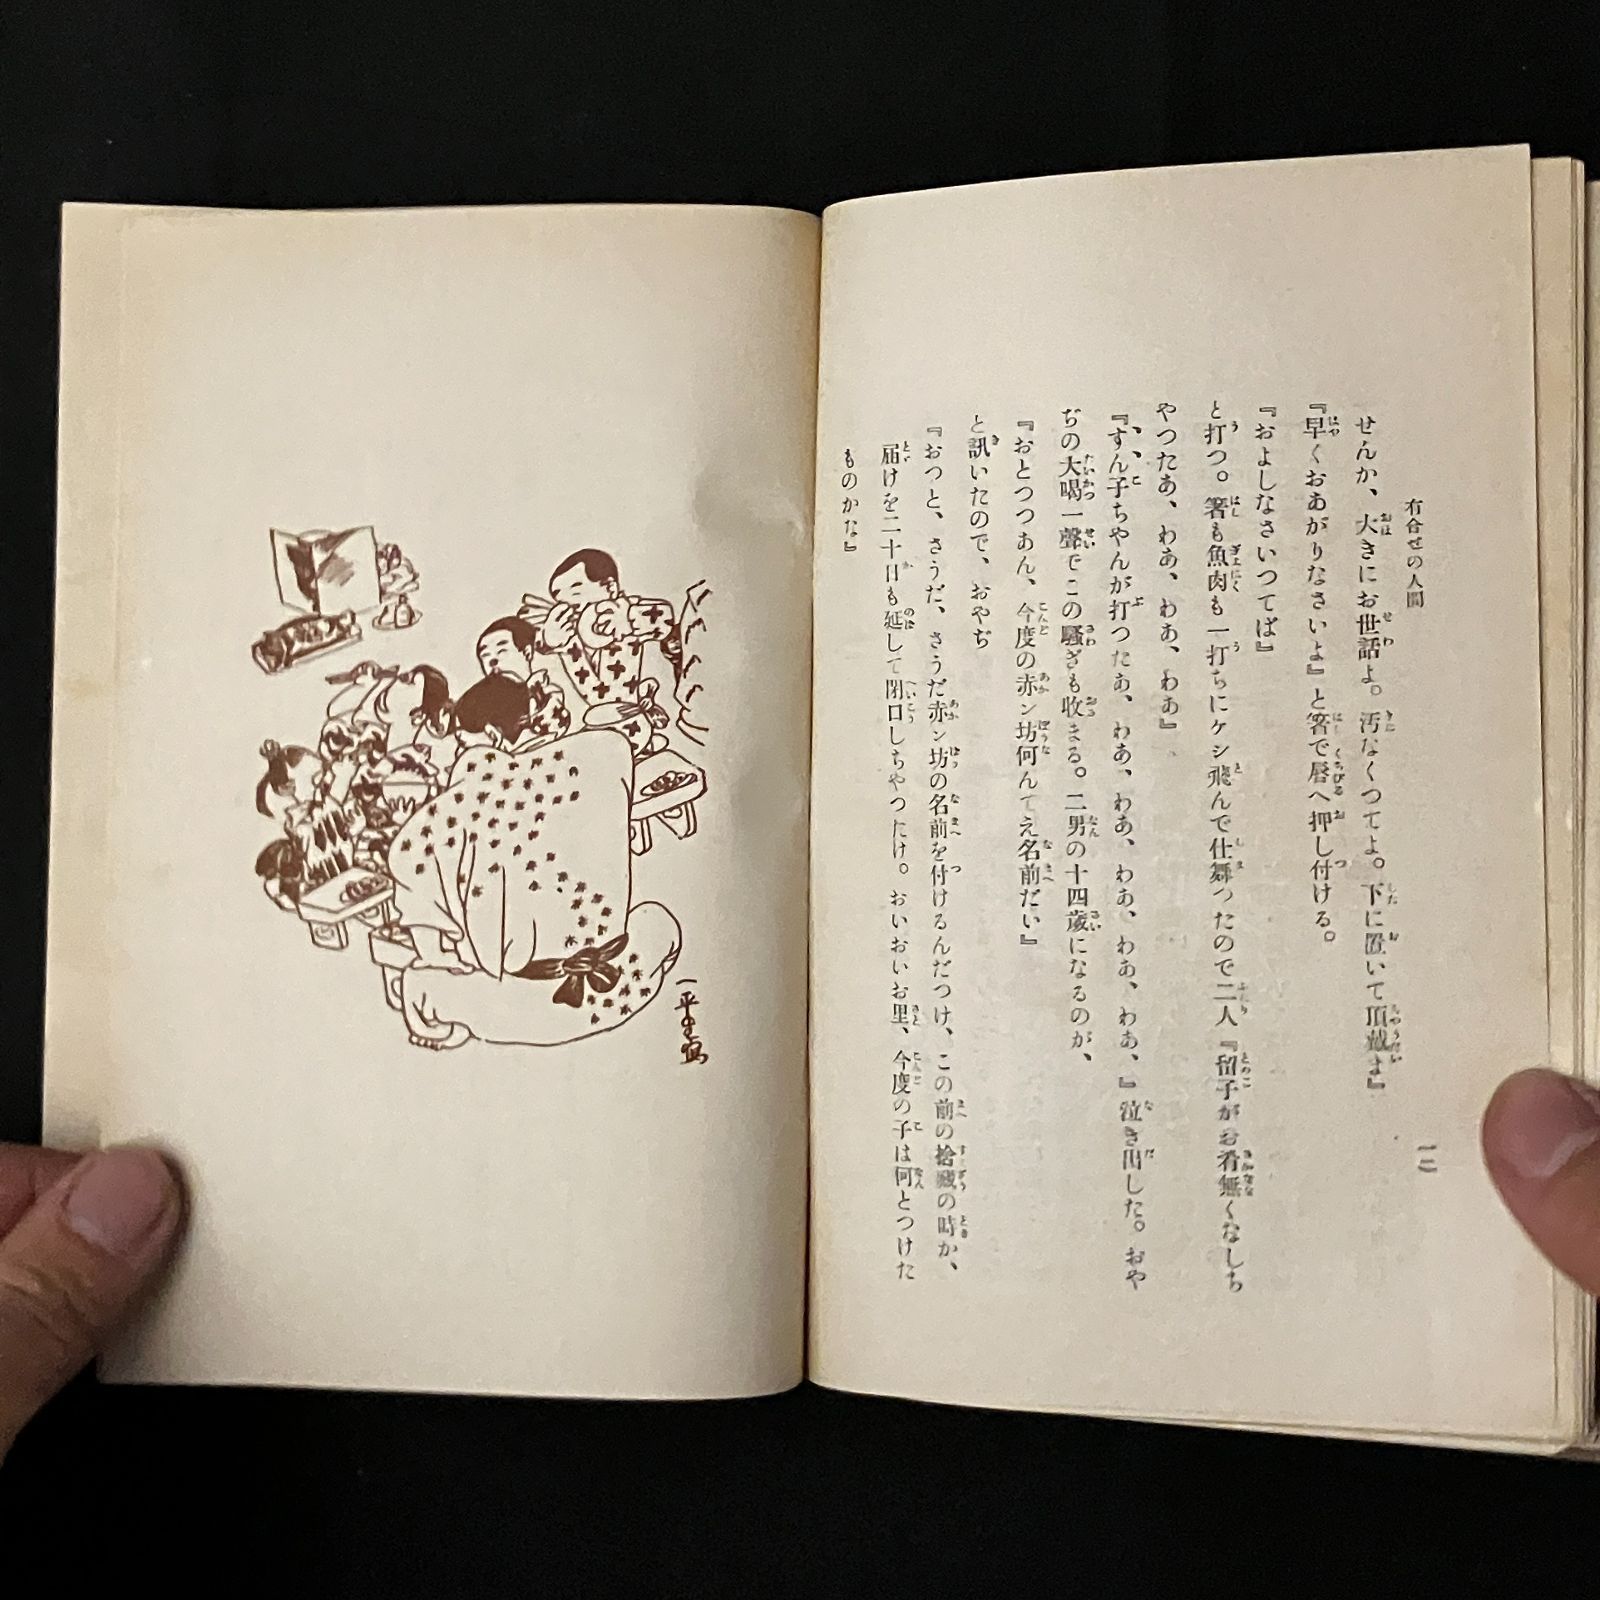 有合せの人間
一二
せんか、大きにお世話よ。汚なくつてよ。下に置いて頂戴よ』
『早くおあがりなさいよ』と箸で唇へ押し付ける。
『およしなさいつてば』
と打つ。箸も魚肉も一打ちにケシ飛んで仕舞つたので二人『留子がお肴無くなしち
やつたあ、わあ、わあ、わあ』
『すん子ちやんが打つたあ、わあ、わあ、わあ、わあ、わあ、』泣き出した。おや
ぢの大喝一聲でこの騷ぎも收まる。二男の十四歳になるのが、
『おとつつあん、今度の赤ン坊何んてえ名前だい』
と訊いたので、おやぢ
『おつと、さうだ、さうだ赤ン坊の名前を付けるんだつけ、この前の捨藏の時か、
届けを二十日も延して閉口しちやつたけ。おいおいお里、今度の子は何とつけた
ものかな』
一平